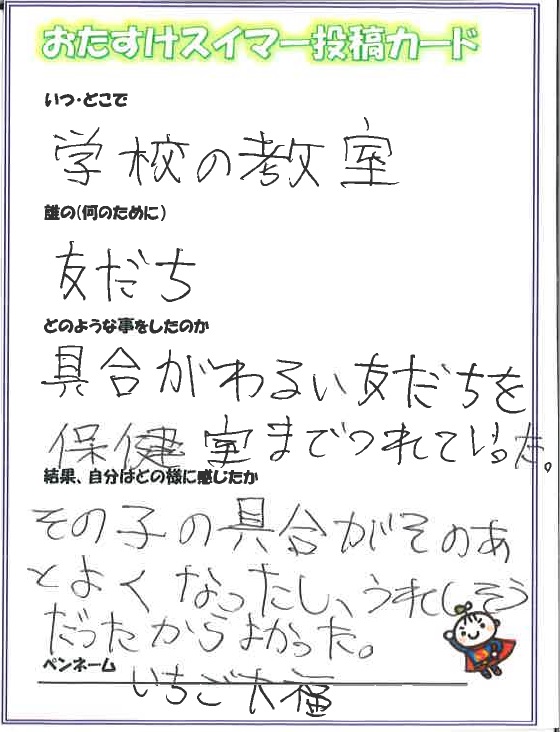 おたすけスイマー投稿カード
いつ・どこで
学校の教室
誰の(何のために)
友だち
どのような事をしたのか
具合がわるい友だちを
保健室までつれていった。
結果、自分はどの様に感じたか
その子の具合がそのあ
とよくなったし、うれしそう
だったからよかった。
ペンネーム
いちご大福